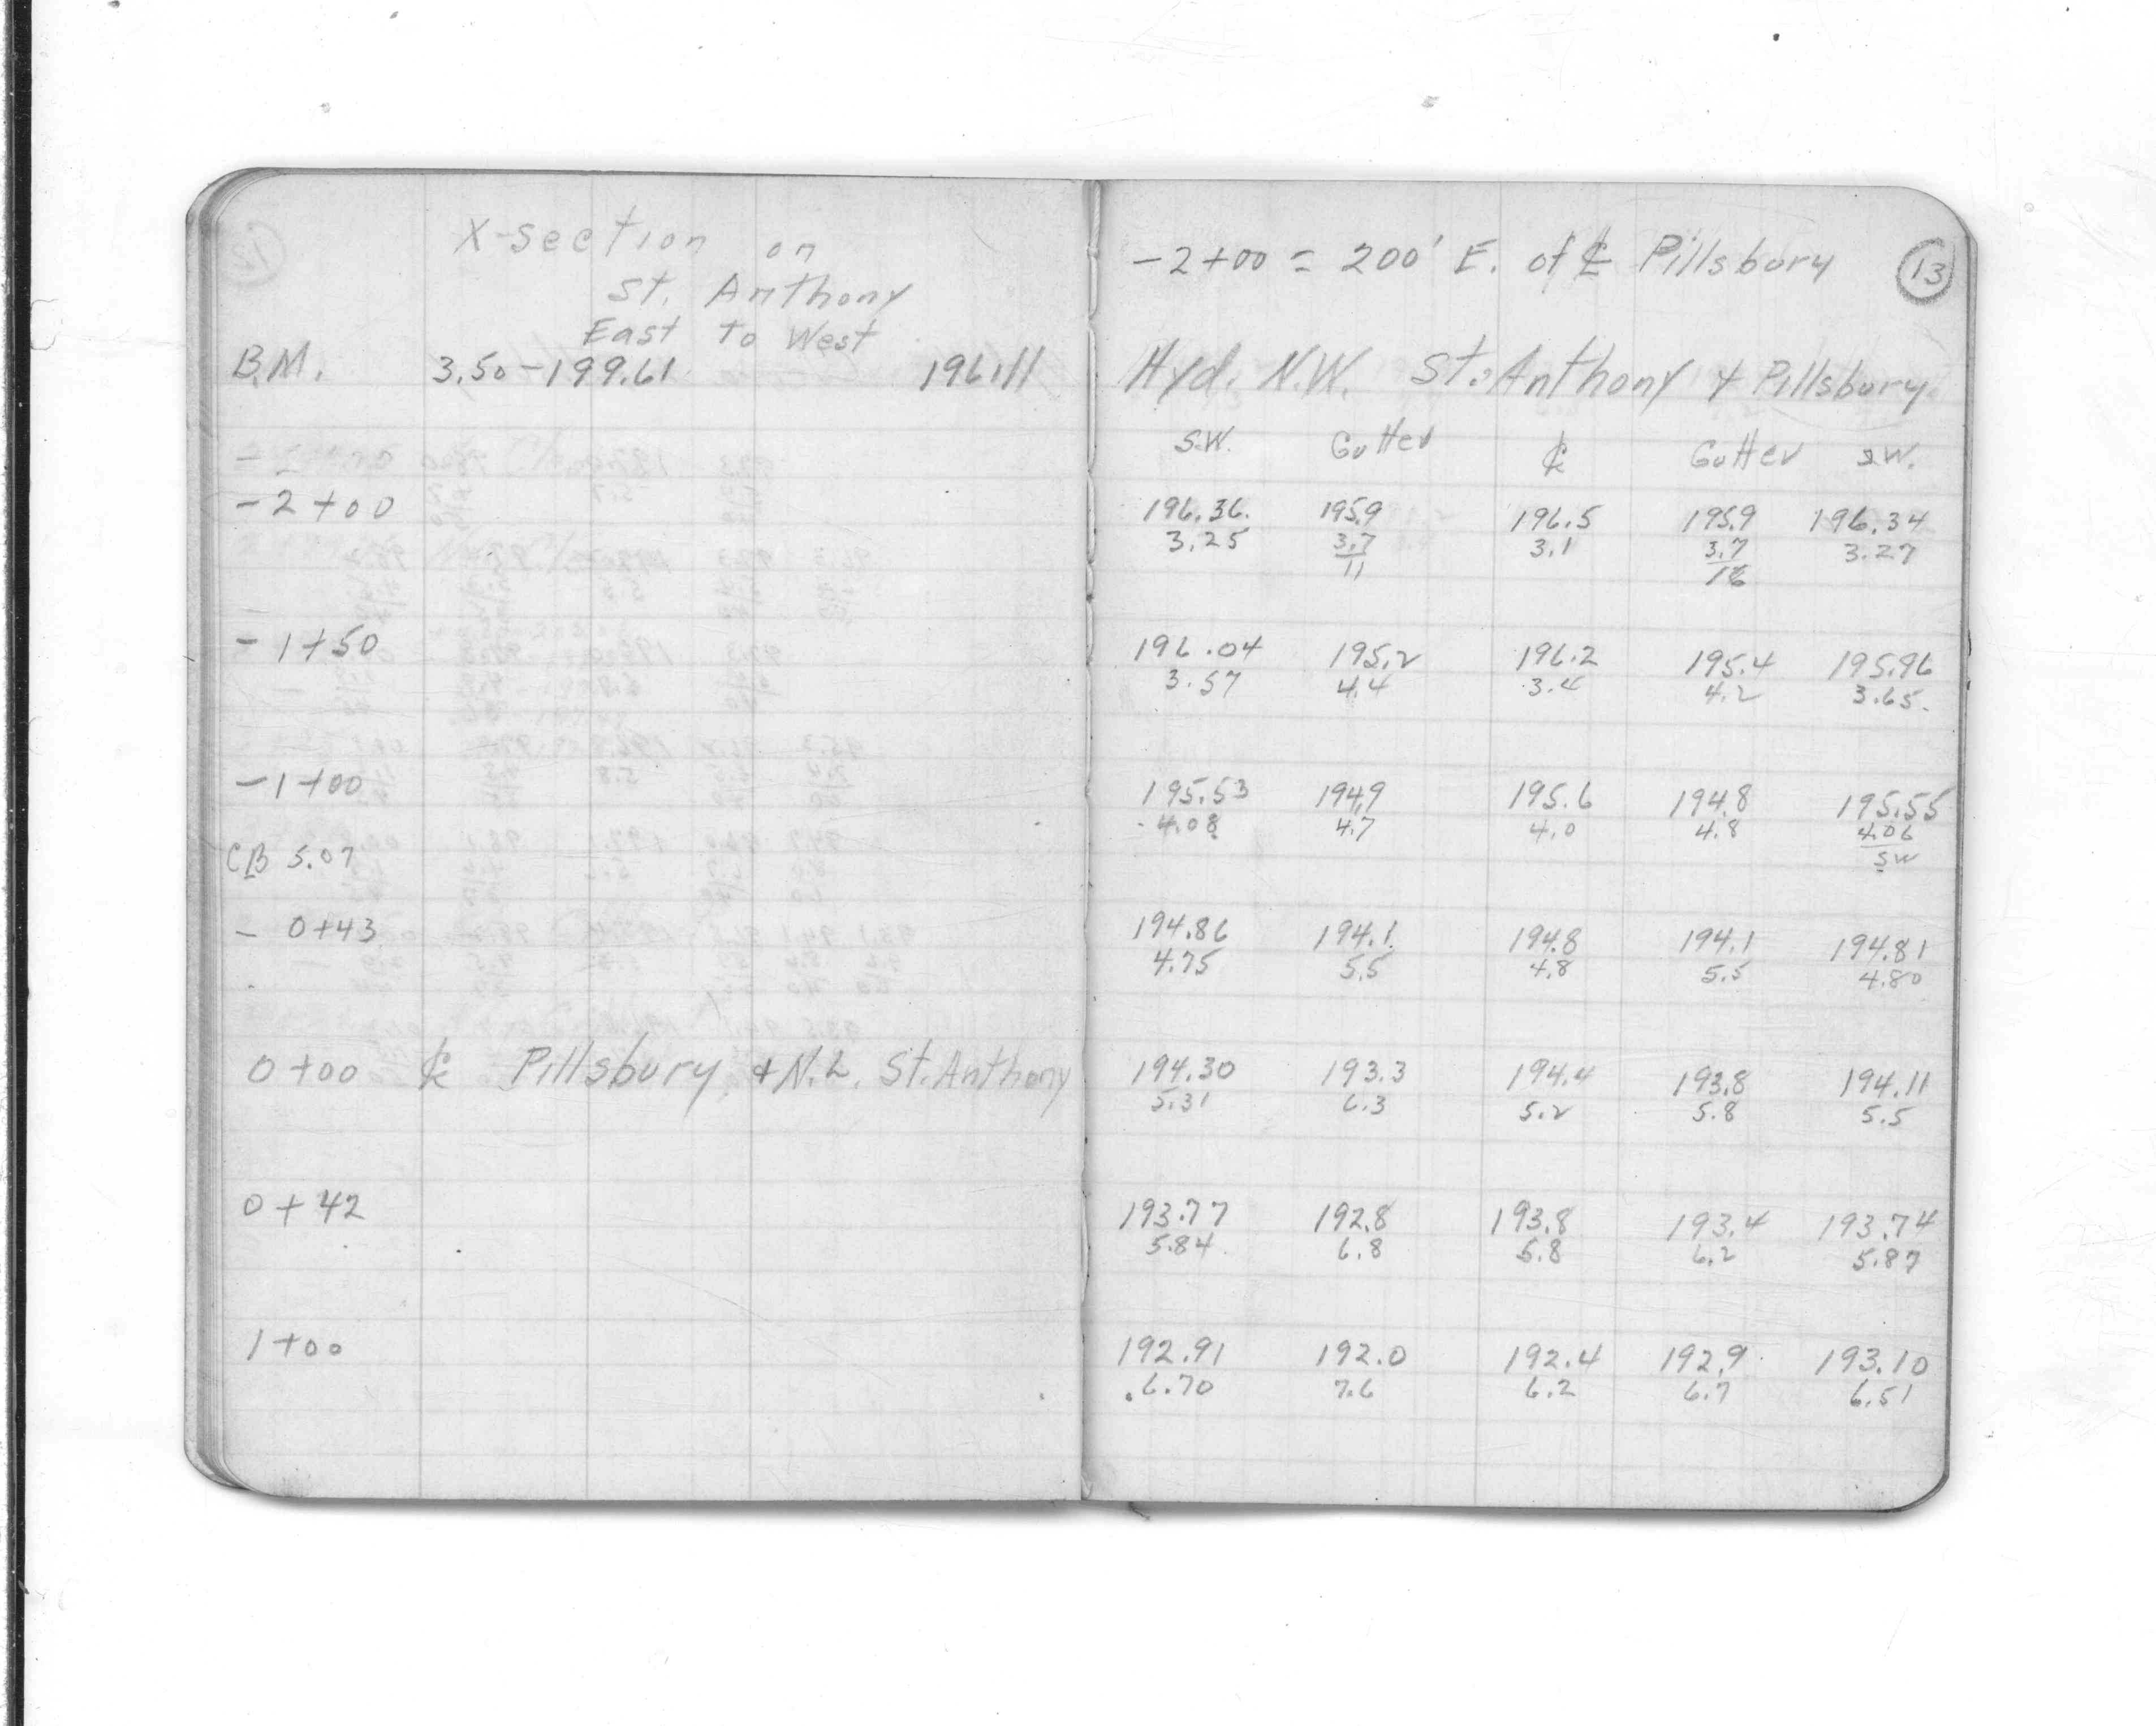 X-section on
St. Anthony
East to West
B.M. 3.50-199.61 196.11
-2+00
-1+50
-1+00
CB 5.07
- 0+43
0+00 ℄ Pillsbury & N.L. St. Anthony
0+42
1+00
-2+00 = 200' E. of ℄ Pillsbury 13
Hyd. N.W. St. Anthony & Pillsbury
S.W. Gutter ℄ Gutter S.W.
196.36 195.9 196.5 195.9 196.34
3.25 3.7 3.1 3.7 3.27
11 18
196.04 195.2 196.2 195.4 195.96
3.57 4.4 3.4 4.2 3.65
195.53 194.9 195.6 194.8 195.55
4.08 4.7 4.0 4.8 4.06
SW
194.86 194.1 194.8 194.1 194.81
4.75 5.5 4.8 5.5 4.80
194.30 193.3 194.4 193.8 194.11
5.31 6.3 5.2 5.8 5.5
193.77 192.8 193.8 193.4 193.74
5.84 6.8 5.8 6.2 5.87
192.91 192.0 192.4 192.9 193.10
6.70 7.6 6.2 6.7 6.51